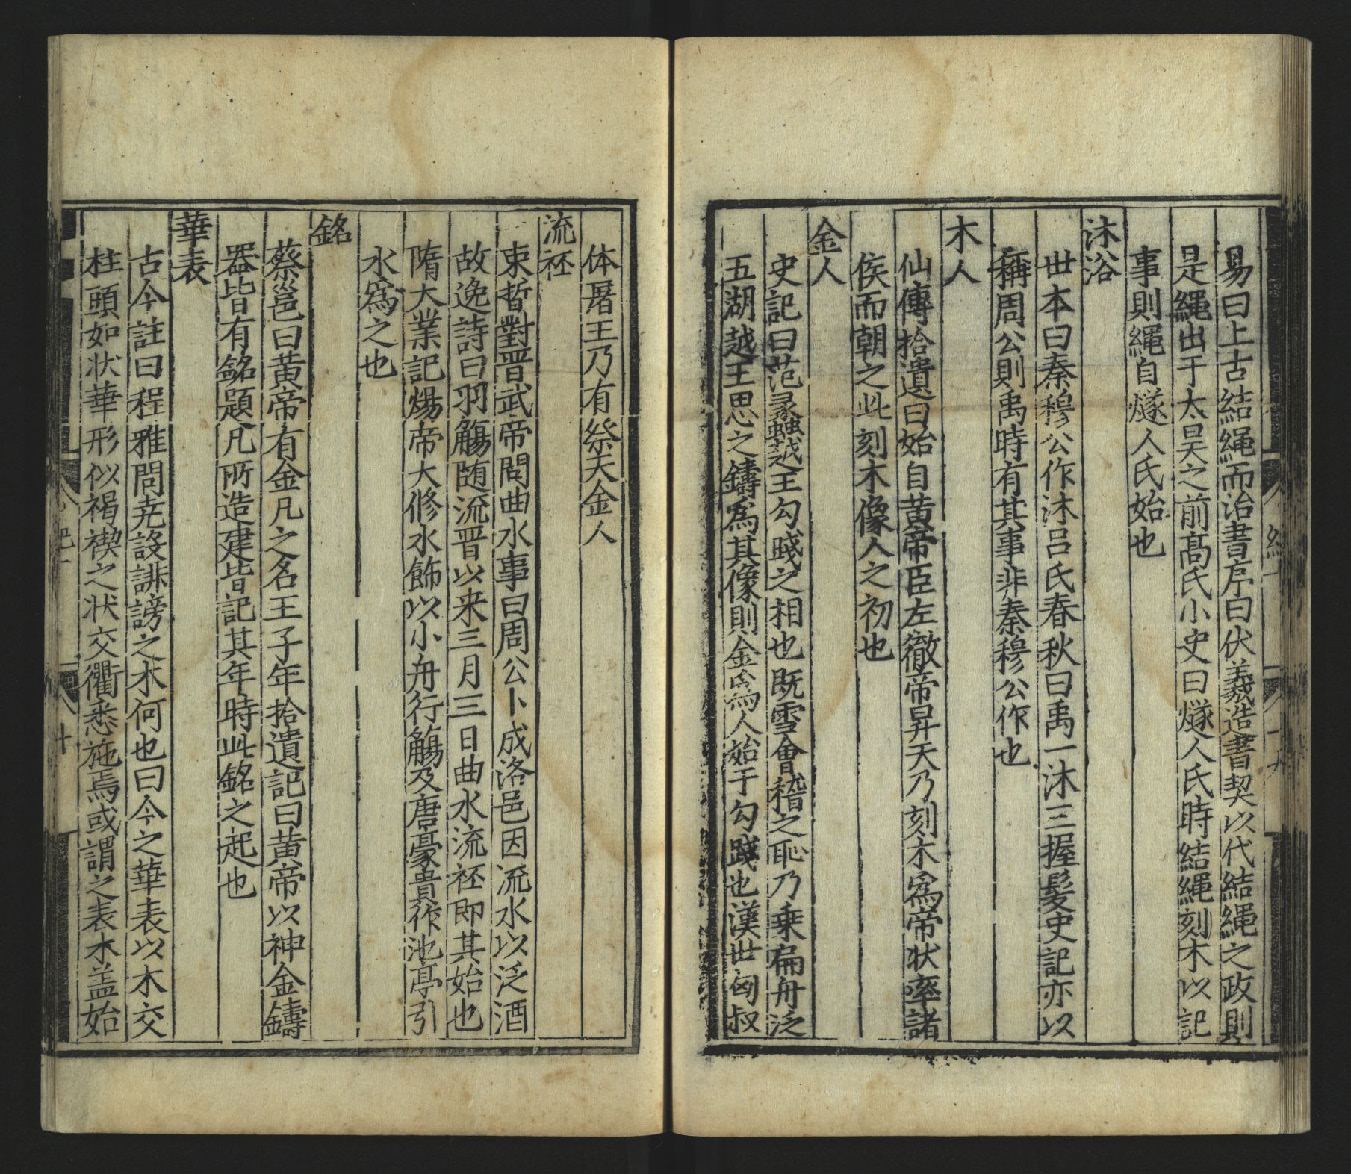 易曰上古結繩而治書序曰伏羲造書契以代結繩之政則
是繩出于太昊之前高氏小史曰燧人氏時結繩刻木以記
事則繩自燧人氏始也
沐浴
世本曰秦穆公作沐吕氏春秋曰禹一沐三握髮史記亦以
稱周公則禹時有其事非秦穆公作也
木人
仙傳拾遺曰始自黄帝臣左徹帝昇天乃刻木爲帝狀率諸
侯而朝之此刻木像人之初也
金人
史記曰范蠡越王勾踐之相也既雪會稽之恥乃乘扁舟泛
五湖越王思之鑄爲其像則金爲人始于勾踐也漢世匈奴
休屠王乃有祭天金人
流柸
束晳對晋武帝問曲水事曰周公卜成洛邑因流水以泛酒
故逸詩曰羽觴随流晋以来三月三日曲水流柸即其始也
隋大業記煬帝大修水飾以小舟行觴及唐豪貴作池亭引
水爲之也
銘
蔡邕曰黄帝有金凡之名王子年拾遺記曰黄帝以神金鑄
器皆有銘題凡所造建皆記其年時此銘之起也
華表
古今註曰程雅問尭設誹謗之木何也曰今之華表以木交
柱頭如状華形似褐楔之状交衢悉施焉或謂之表木盖始